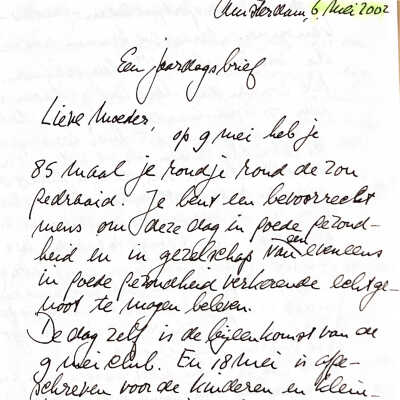 Amsterdam, 6 mei 2002
Een jaardagsbrief
Lieve moeder,
op 9 mei heb je
85 maal je rondje rond de zon
gedraaid. Je bent een bevoorrecht
mens om deze dag in goede gezond-
heid en in gezelschap van een eveneens
in goede gezondheid verkerende echtge-
noot te mogen beleven.
De dag zelf is de bijeenkomst van de
9 mei club. En 18 mei is afge-
schreven voor de kinderen en klein-